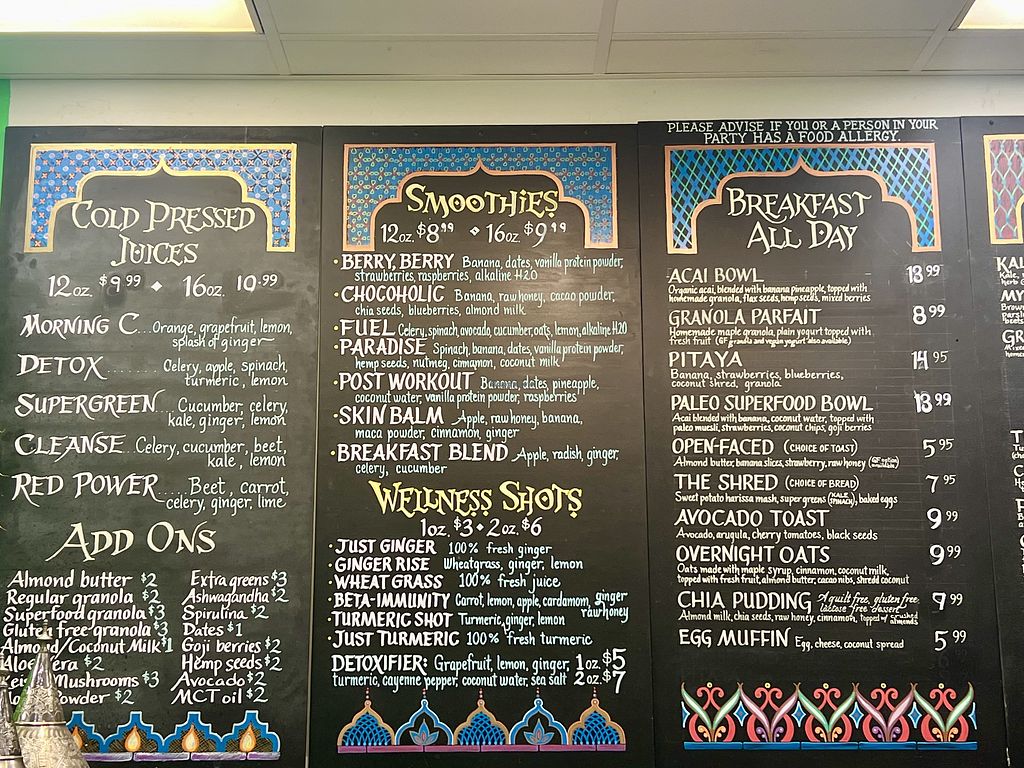 COLD PRESSED
JUICES
12oz. $9.99 ◆ 16oz. 10.99
MORNING C...Orange, grapefruit, lemon,
splash of ginger~
DETOX........Celery, apple, spinach,
turmeric, lemon
SUPERGREEN Cucumber, celery,
kale, ginger, lemon
CLEANSE Celery, cucumber, beet,
kale, lemon
RED POWER.....Beet, carrot,
celery, ginger, lime
ADD ONS
Almond butter $2
Regular granola $2
Superfood granola $3
Gluten free granola $3
Almond/Coconut Milk $1
Aloe Vera $2
Mushrooms $3
Powder $2
Extra greens $3
Ashwagandha $2
Spirulina $2
Dates $1
Goji berries $2
Hemp seeds $2
Avocado $2
MCT oil $2
SMOOTHiES
12oz. $8.99 ◆ 16oz. $9.99
• BERRY, BERRY Banana, dates, vanilla protein powder,
strawberries, raspberries, alkaline H2O
• CHOCOHOLIC Banana, raw honey, cacao powder,
chia seeds, blueberries, almond milk
• FUEL Celery, spinach, avocado, cucumber, oats, lemon, alkaline H2O
• PARADISE Spinach, banana, dates, vanilla protein powder,
hemp seeds, nutmeg, cinnamon, coconut milk
• POST WORKOUT Banana, dates, pineapple,
coconut water, vanilla protein powder, raspberries
• SKIN BALM Apple, raw honey, banana,
maca powder, cinnamon, ginger
• BREAKFAST BLEND Apple, radish, ginger,
celery, cucumber
WELLNESS SHOTS
1oz. $3 • 2oz. $6
• JUST GINGER 100% fresh ginger
• GINGER RISE Wheatgrass, ginger, lemon
• WHEAT GRASS 100% fresh juice
• BETA-IMMUNITY Carrot, lemon, apple, cardamom, ginger
raw honey
• TURMERIC SHOT Turmeric, ginger, lemon
• JUST TURMERIC 100% fresh turmeric
DETOXIFIER: Grapefruit, lemon, ginger, 1oz. $5
turmeric, cayenne pepper, coconut water, sea salt 2oz. $7
PLEASE ADVISE IF YOU OR A PERSON IN YOUR
PARTY HAS A FOOD ALLERGY.
BREAKFAST
ALL DAY
ACAI BOWL 13.99
Organic acai, blended with banana pineapple, topped with
homemade granola, flax seeds, hemp seeds, mixed berries
GRANOLA PARFAIT 8.99
Homemade maple granola, plain yogurt topped with
fresh fruit (GF granola and vegan yogurt also available)
PITAYA 14.95
Banana, strawberries, blueberries,
coconut shred, granola
PALEO SUPERFOOD BOWL 13.99
Acai blended with banana, coconut water, topped with
paleo muesli, strawberries, coconut chips, goji berries
OPEN-FACED (CHOICE OF TOAST) 5.95
Almond butter, banana slices, strawberry, raw honey (GF option available)
THE SHRED (CHOICE OF BREAD) 7.95
Sweet potato harissa mash, super greens (KALE SPINACH), baked eggs
AVOCADO TOAST 9.99
Avocado, arugula, cherry tomatoes, black seeds
OVERNIGHT OATS 9.99
Oats made with maple syrup, cinnamon, coconut milk,
topped with fresh fruit, almond butter, cacao nibs, shredd coconut
CHIA PUDDING A guilt free, gluten free, 9.99
lactose free dessert
Almond milk, chia seeds, raw honey, cinnamon, topped w/ crushed almonds
EGG MUFFIN Egg, cheese, coconut spread 5.99